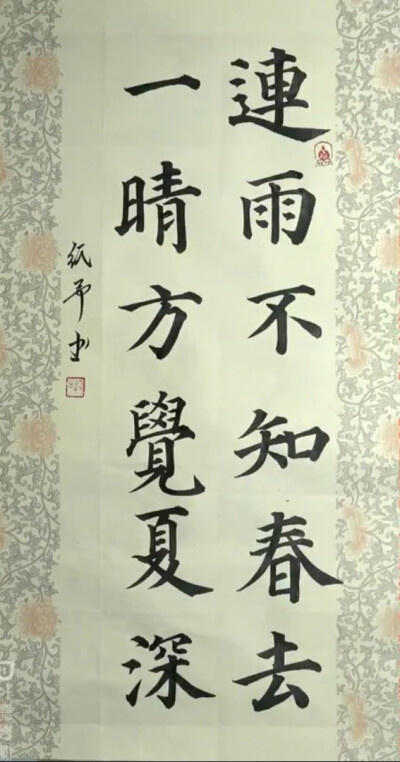 連雨不知春去
一晴方覺夏深